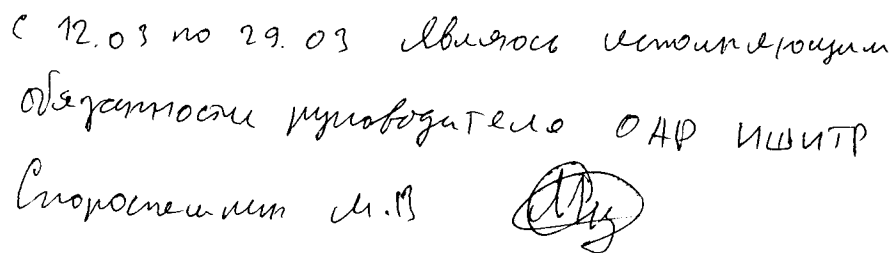 с 12.03 по 29.03 являюсь исполняющим
обязанности руководителя ОАР ИШИТР
Скороспешкин М.В